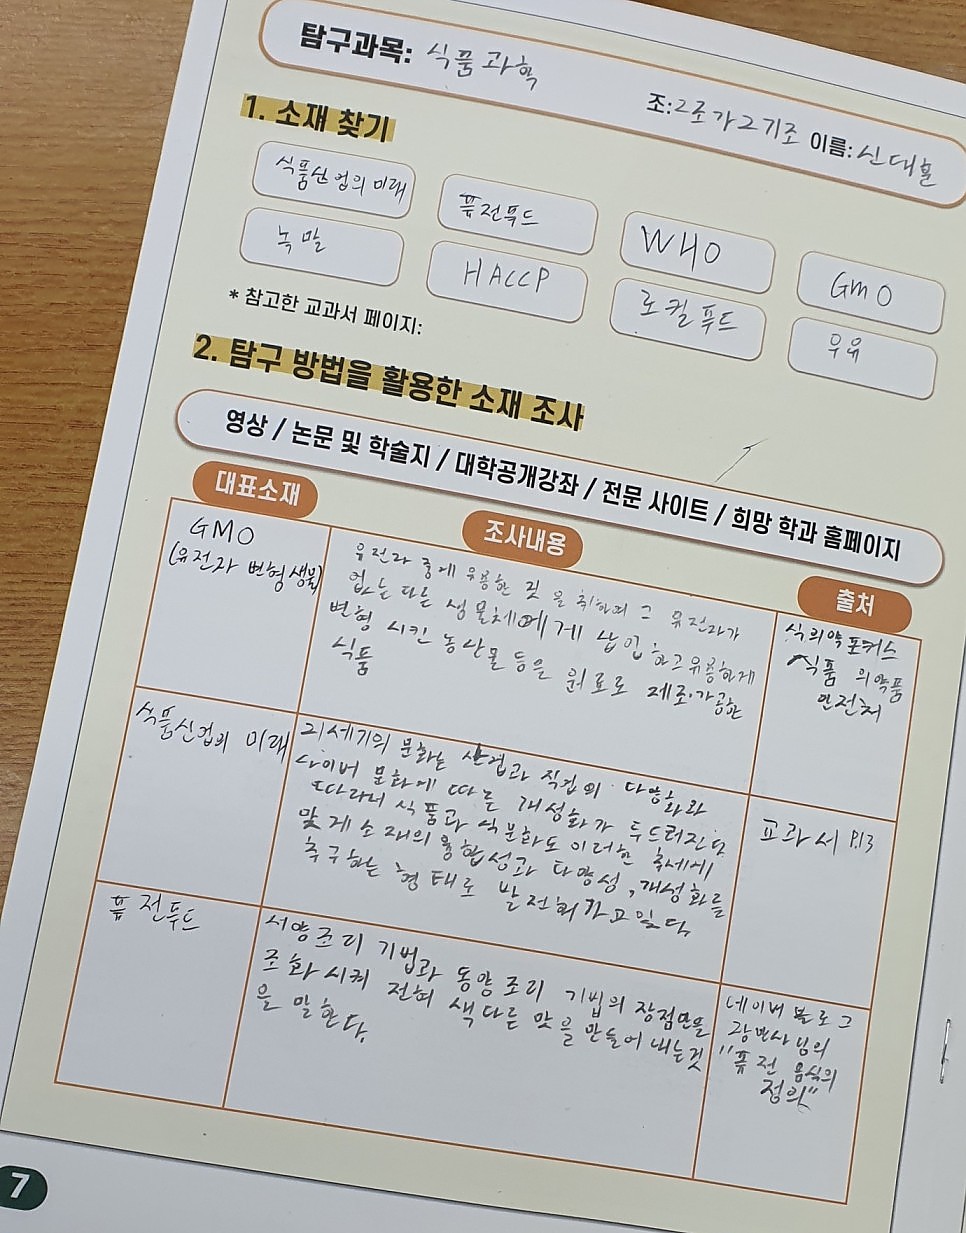 탐구과목: 식품과학
조: 2조가2기조 이름: 신대훈
1. 소재 찾기
식품산업의 미래 퓨전푸드 WHO GMO
녹말 HACCP 로컬푸드 우유
* 참고한 교과서 페이지:
2. 탐구 방법을 활용한 소재 조사
영상 / 논문 및 학술지 / 대학공개강좌 / 전문 사이트 / 희망 학과 홈페이지
대표소재 조사내용 출처
GMO
(유전자 변형생물)
유전자 중에 유용한 것을 취하여 그 유전자가
없는 다른 생물체에게 삽입하고 유용하게
변형 시킨 농산물 등을 원료로 제조·가공한
식품
식의약포커스
식품 의약품
안전처
식품산업의 미래
21세기의 문화는 산업과 직업의 다양화와
사이버 문화에 따른 개성화가 두드러진다.
따라서 식품과 식문화도 이러한 추세에
맞게 소재의 융합성과 다양성, 개성화를
추구하는 형태로 발전해가고 있다.
교과서 P.13
퓨전푸드
서양조리 기법과 동양조리 기법의 장점만을
조화시켜 전혀 색다른 맛을 만들어 내는것
을 말한다.
네이버 블로그
님의
"퓨전 음식의
정의"
7